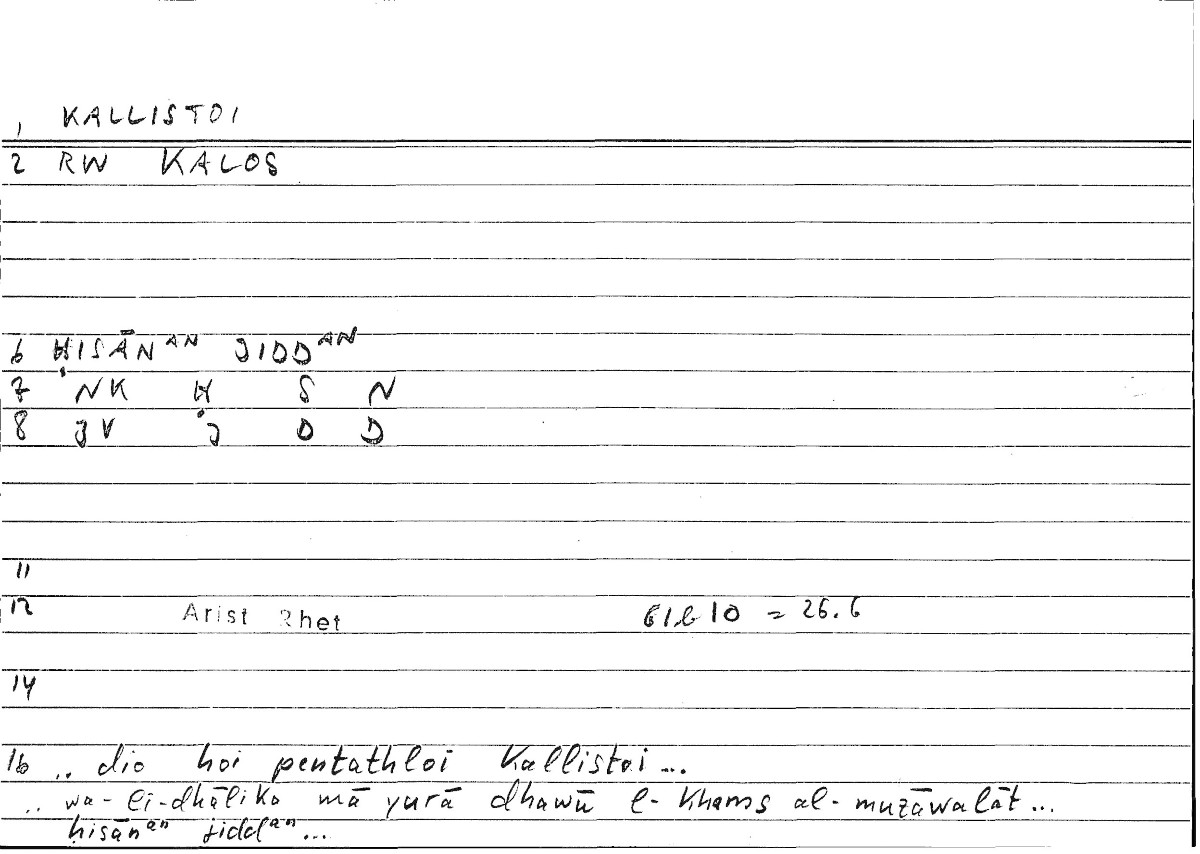 1 KALLISTOI
2 RW KALOS
6 ḤISĀNᴬᴺ JIDDᴬᴺ
7 NK Ḥ S N
8 JV J D D
11
12 Arist Rhet 61b10 = 26.6
14
16 .. dio hoi pentathloi kallistoi...
.. wa-li-dhālika mā yurā dhawū l-khams al-muzāwalāt...
ḥisānᵃⁿ jiddᵃⁿ...